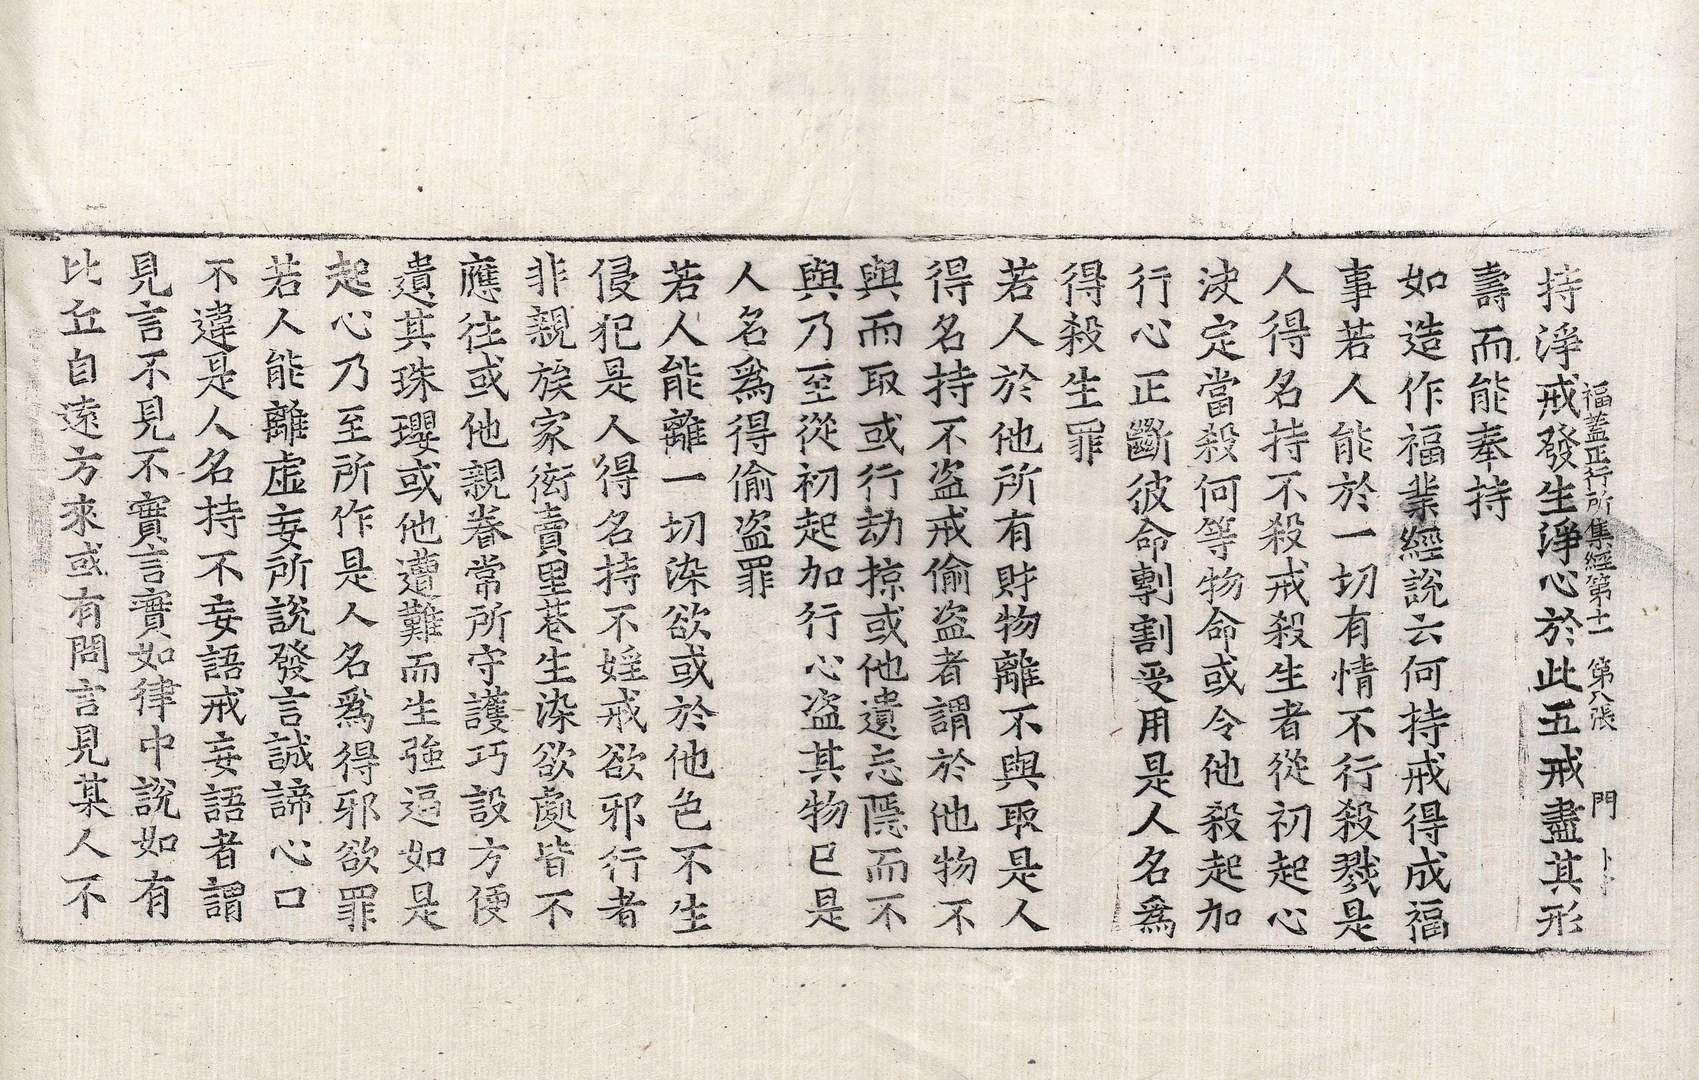 福蓋正行所集經第十一　第八張　門
持淨戒發生淨心於此五戒盡其形
壽而能奉持
如造作福業經說云何持戒得成福
事若人能於一切有情不行殺戮是
人得名持不殺戒殺生者從初起心
決定當殺何等物命或令他殺起加
行心正斷彼命剸割受用是人名爲
得殺生罪
若人於他所有財物離不與取是人
得名持不盜戒偷盜者謂於他物不
與而取或行劫掠或他遺忘隱而不
與乃至從初起加行心盜其物已是
人名爲得偷盜罪
若人能離一切染欲或於他色不生
侵犯是人得名持不婬戒欲邪行者
非親族家衒賣里巷生染欲處皆不
應往或他親眷常所守護巧設方便
遺其珠瓔或他遭難而生強逼如是
起心乃至所作是人名爲得邪欲罪
若人能離虛妄所說發言誠諦心口
不違是人名持不妄語戒妄語者謂
見言不見不實言實如律中說如有
比丘自遠方來或有問言見某人不